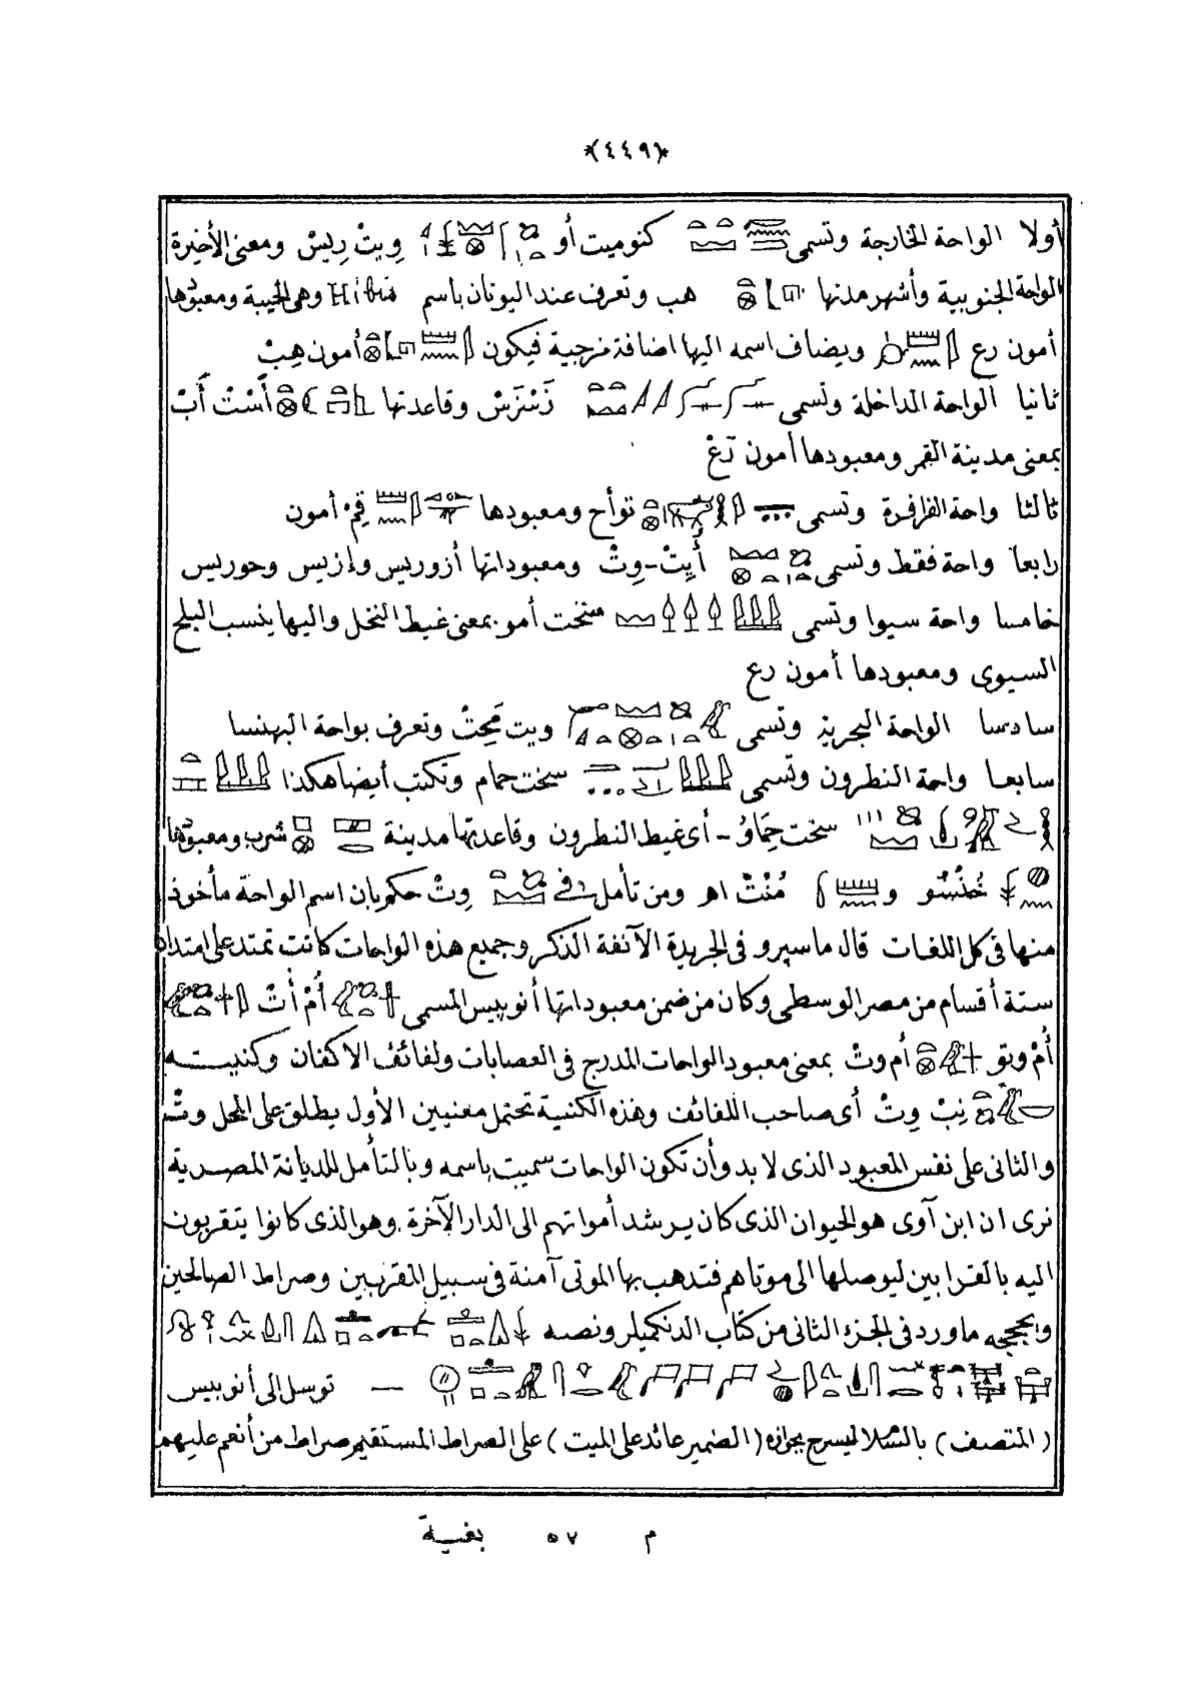 ﴿٤٤٩﴾
أولا الواحة الخارجة وتسمى كنوميت أو وِيتْ رِيسْ ومعنى الأخيرة
الواحة الجنوبية وأشهر مدنها هب وتعرف عند اليونان باسم Hibis وهى الحيبة ومعبودها
أمون رع ويضاف اسمه اليها اضافة مزجية فيكون أمون هِبْ
ثانيا الواحة الداخلة وتسمى زَسْزَسْ وقاعدتها أَسْتْ أَبْ
بمعنى مدينة القمر ومعبودها أمون رَعْ
ثالثا واحة الفرافرة وتسمى توأح ومعبودها قِمْ أمون
رابعا واحة فقط وتسمى أُيِتْ-وِتْ ومعبوداتها أزوريس وإزيس وحوريس
خامسا واحة سيوا وتسمى سخت أمو بمعنى غيط النخل واليها ينسب البلح
السيوى ومعبودها أمون رع
سادسا الواحة البحرية وتسمى ويت مَحِتْ وتعرف بواحة البهنسا
سابعا واحة النطرون وتسمى سخت حمام وتكتب أيضا هكذا
سخت حِمَاوُ - أى غيط النطرون وقاعدتها مدينة شرب ومعبودها
خُنْسُو و مُنْتْ اهـ ومن تأمل فى وِتْ حكم بان اسم الواحة مأخوذ
منها فى كل اللغات قال ماسپرو فى الجريدة الآنفة الذكر وجميع هذه الواحات كانت تمتد على امتداد
ستة أقسام من مصر الوسطى وكان من ضمن معبوداتها أنوبيس المسمى أُمْ أُتْ
أُمْ ويتو أم وتْ بمعنى معبود الواحات المدرج فى العصابات ولفائف الاكفان وكنيته
نِبْ وِتْ أى صاحب اللفائف وهذه الكنية تحتمل معنيين الأول يطلق على المحل وتْ
والثانى على نفس المعبود الذى لا بد وأن تكون الواحات سميت باسمه وبالتأمل للديانة المصرية
نرى ان ابن آوى هو الحيوان الذى كان يرشد أمواتهم الى الدار الآخرة وهو الذى كانوا يتقربون
اليه بالقرابين ليوصلها الى موتاهم فتدهب بها الموتى آمنة فى سبيل المقربين وصراط الصالحين
ما ورد فى الجزء الثانى من كتاب الدنكميلر ونصه
— توسل إلى أنوبيس
(المتصف) ليسرح بجوازه (الضمير عائد على الميت) على الصراط المستقيم صراط من أنعم عليهم
م ٥٧ بغية